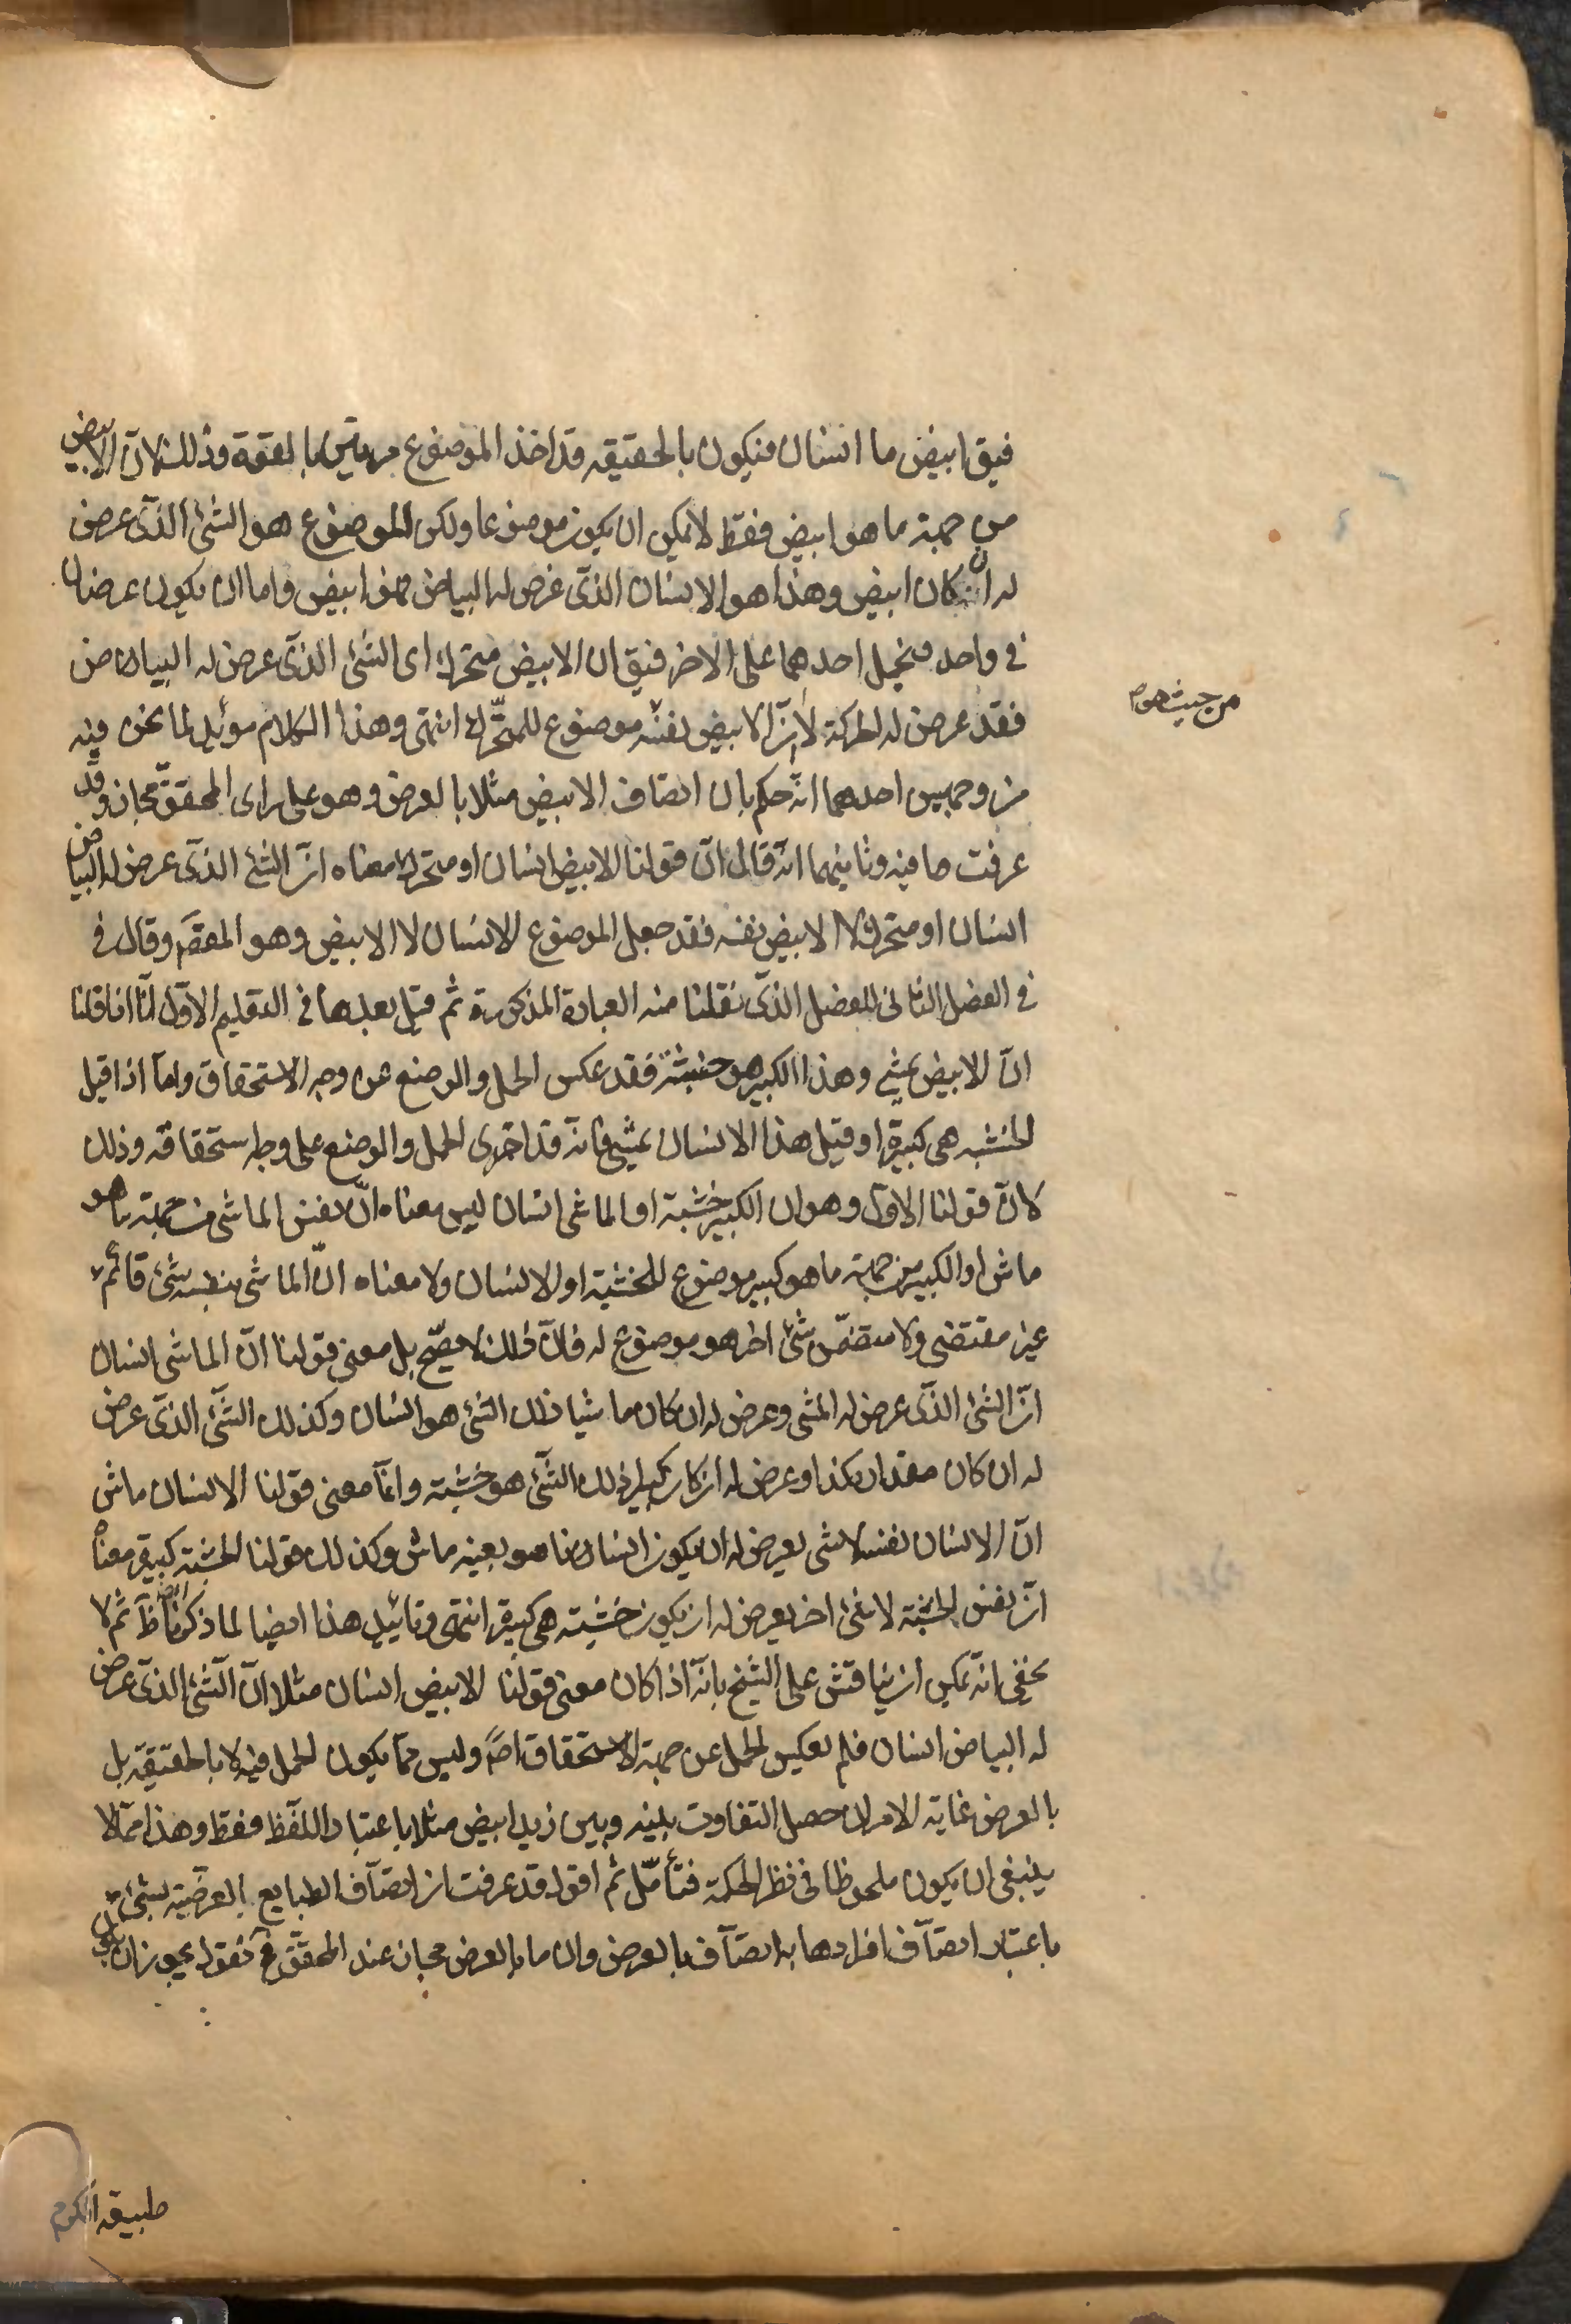 فيق ابيض ما انسان فيكون بالحقيقه قد اخذ الموضوع مرتين بالقوة وذلك لان الابيض
من جهة ما هو ابيض فقط لا يمكن ان يكون موضوعا ولكن الموضوع هو الشئ الذى عرض
له ان كان ابيض وهذا هو الانسان الذى عرض له البياض فهو ابيض واما ان يكون عرضان
فى واحد فيحمل احدهما على الاخر فيق ان الابيض متحرك اى الشئ الذى عرض له البياض
من حيث هو
فقد عرض له الحركة لا ان الابيض نفسه موضوع للمتحرك انتهى وهذا الكلام مويد لما نحن فيه
من وجهين احدهما انه حكم بان اتصاف الابيض مثلا بالعرض وهو على راى المحقق مجاز وقد
عرفت ما فيه وثانيهما انه قال ان قولنا الابيض انسان او متحرك معناه ان الشئ الذى عرض له البياض
انسان او متحرك لا الابيض نفسه فقد جعل الموضوع الانسان لا الابيض وهو المقصم وقال فى
فى الفصل الثانى للفصل الذى نقلنا منه العبارة المذكورة ثم قبل بعدها فى التعليم الاول انا اذا قلنا
ان الابيض يمشى وهذا الكبير هو خشبة فقد عكس الحمل والوضع عن وجه الاستحقاق واما اذا قيل
الخشبه هى كبيرة او قيل هذا الانسان يمشى فانه قد اجرى الحمل والوضع على وجه استحقاقه وذلك
لان قولنا الاول وهو ان الكبير خشبة او الماشى انسان ليس معناه ان نفس الماشى من جهة ما هو
ماش او الكبير من جهة ما هو كبير موضوع للخشبة او الانسان ولا معناه ان الماشى بنفسه شئ قائم
غير مقتضى ولا متضمن شئ اخر هو موضوع له فان ذلك لا يصح بل معنى قولنا ان الماشى انسان
ان الشئ الذى عرض له المشى وعرض له ان كان ماشيا ذلك الشئ هو انسان وكذلك الشئ الذى عرض
له ان كان مقدار كذا وعرض له ان كان كبيرا ذلك الشئ هو خشبة وانما معنى قولنا الانسان ماش
ان الانسان نفسه لا شى يعرض له ان يكون انسانا هو بعينه ماش وكذلك قولنا الخشبة كبيرة معناه
ان نفس الخشبة لا شئ اخر يعرض له ان يكون خشبة هى كبيرة انتهى وتائيد هذا ايضا لما ذكرنا ظ ثم لا
يخفى انه يمكن ان يناقش على الشيخ بانه اذا كان معنى قولنا الابيض انسان مثلا ان الشئ الذى عرض
له البياض انسان فلم يعكس الحمل عن جهة الاستحقاق اصلا وليس مما يكون الحمل فيه لا بالحقيقة بل
بالعرض غاية الامر ان حصل التفاوت بينه وبين زيد ابيض مثلا باعتبار اللفظ فقط وهذا مما لا
ينبغى ان يكون ملحوظا فى نظر الحكمة فتأمل ثم اقول قد عرفت ان اتصاف الطبايع العرضية بشئ
باعتبار اتصاف افرادها به اتصاف بالعرض وان ما بالعرض مجاز عند المحقق فح نقول يجوز ان يكون
طبيعة